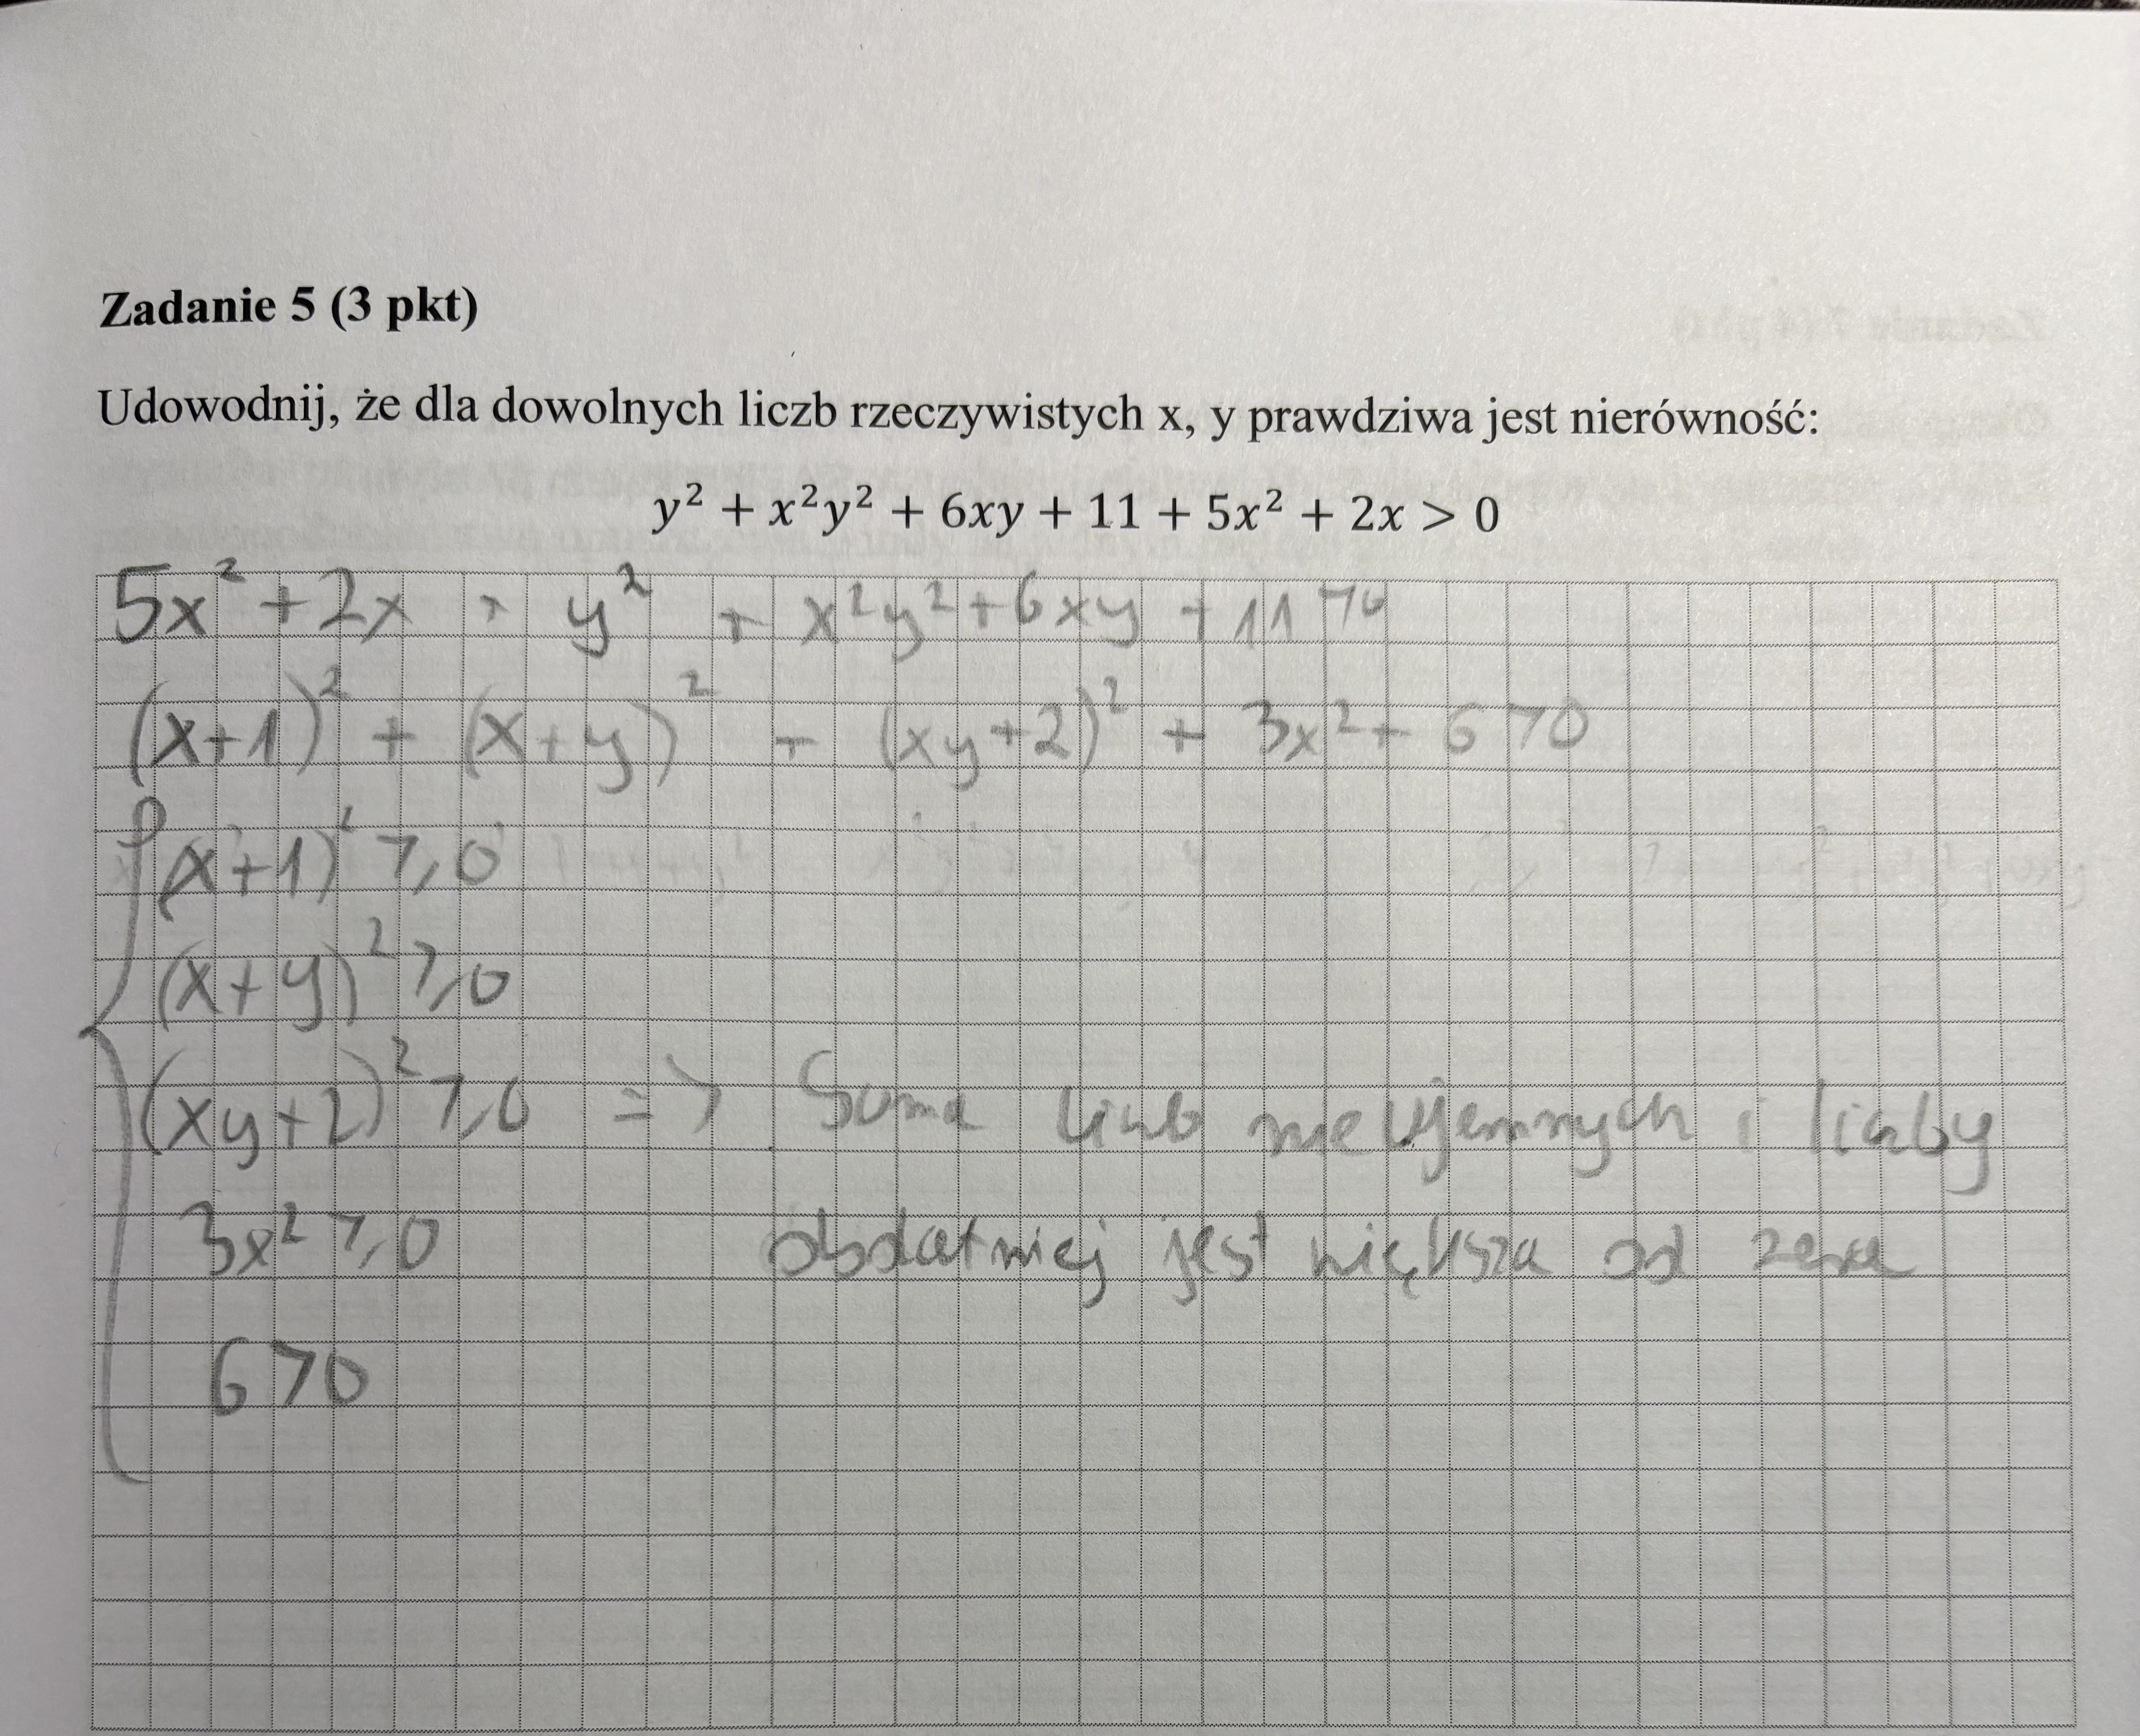 Zadanie 5 (3 pkt)
Udowodnij, że dla dowolnych liczb rzeczywistych x, y prawdziwa jest nierówność:
y² + x²y² + 6xy + 11 + 5x² + 2x > 0
5x² + 2x + y² + x²y² + 6xy + 11 > 0
(x+1)² + (x+y)² + (xy+2)² + 3x² + 6 > 0
(x+1)² ≥ 0
(x+y)² ≥ 0
(xy+2)² ≥ 0 => Suma liczb nieujemnych i liczby
3x² ≥ 0 dodatniej jest większa od zera
6 > 0